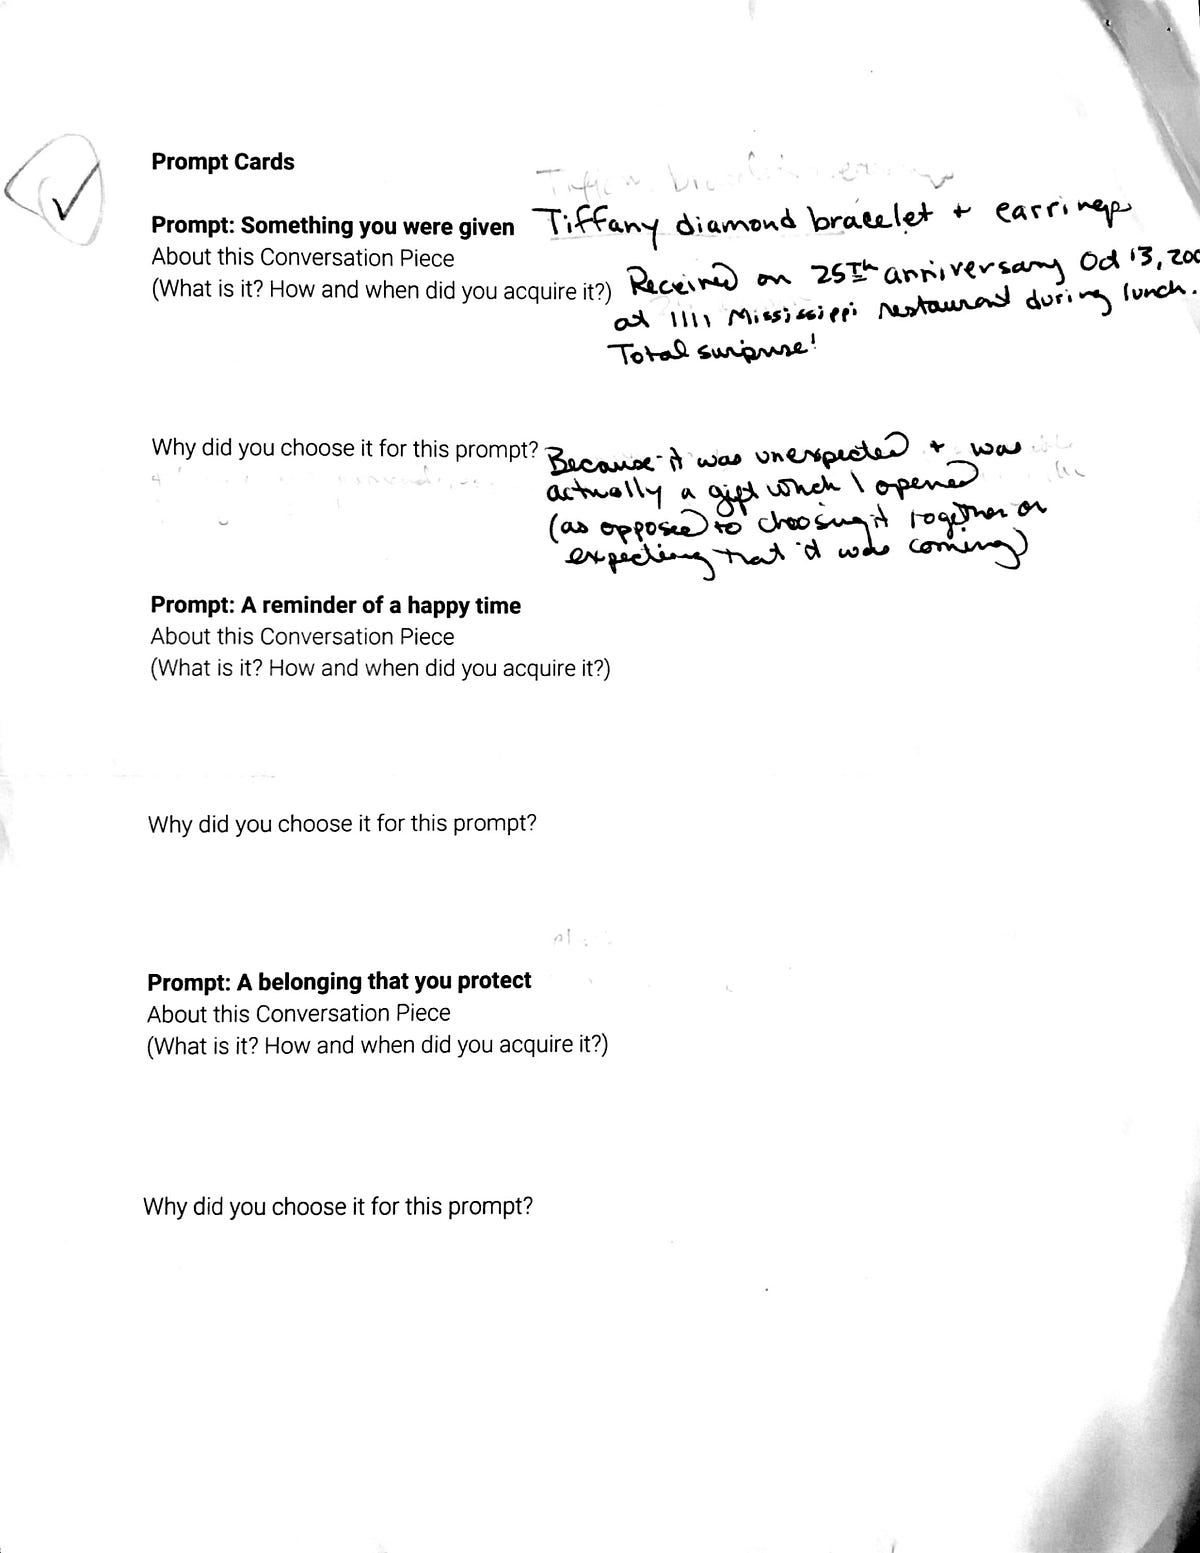 Prompt Cards
Prompt: Something you were given Tiffany diamond bracelet + earrings
About this Conversation Piece
(What is it? How and when did you acquire it?) Received on 25Th anniversary Oct 13, 200
at 1111 Mississippi restaurant during lunch.
Total surprise!
Why did you choose it for this prompt? Because it was unexpected + was
actually a gift which I opened
(as opposed to choosing it together or
expecting that it was coming)
Prompt: A reminder of a happy time
About this Conversation Piece
(What is it? How and when did you acquire it?)
Why did you choose it for this prompt?
Prompt: A belonging that you protect
About this Conversation Piece
(What is it? How and when did you acquire it?)
Why did you choose it for this prompt?